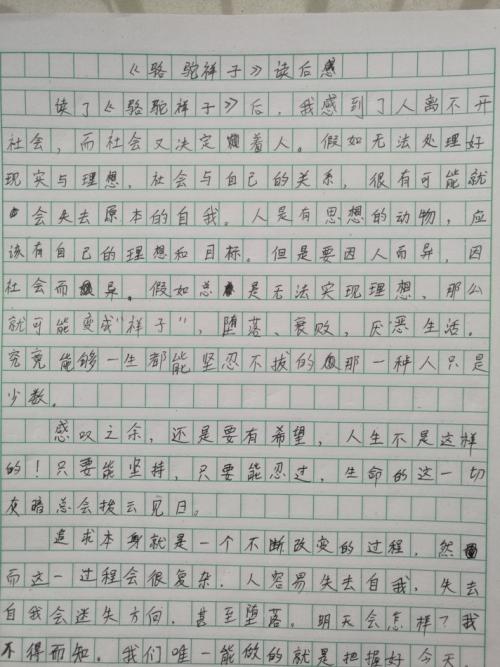 《骆驼祥子》读后感
读了《骆驼祥子》后，我感到了人离不开
社会，而社会又决定着人。假如无法处理好
现实与理想，社会与自己的关系，很有可能就
会失去原本的自我。人是有思想的动物，应
该有自己的理想和目标。但是要因人而异，因
社会而异。假如总是无法实现理想，那么
就可能变成"祥子"，堕落、衰败，厌恶生活。
究竟能够一生都能坚忍不拔的那一种人只是
少数。
感叹之余，还是要有希望，人生不是这样
的！只要能坚持，只要能忍过，生命的这一切
灰暗总会拨云见日。
追求本身就是一个不断改变的过程，然
而这一过程会很复杂。人容易失去自我，失去
自我会迷失方向，甚至堕落。明天会怎样？我
不得而知。我们唯一能做的就是把握好今天。